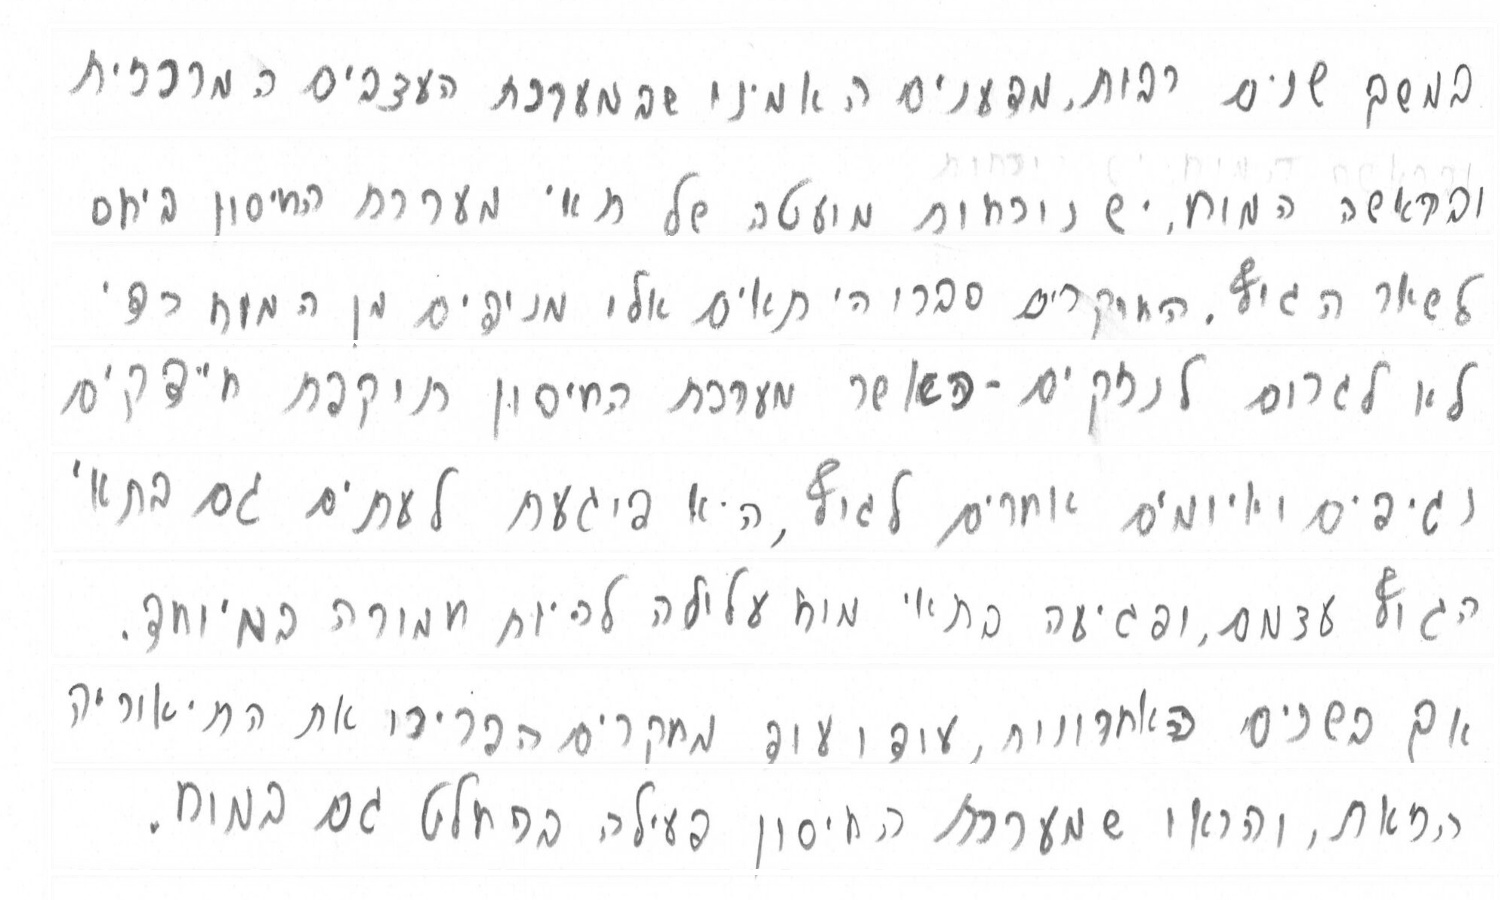 במשך שנים רבות, מדענים האמינו שבמערכת העצבים המרכזית
ובראשה המוח, יש נוכחות מועטה של תאי מערכת החיסון ביחס
לשאר הגוף. החוקרים סברו הי תאים אלו מניפים מן המוח כדי
לא לגרום לנזקים - כשאשר מערכת החיסון תוקפת חיידקים
נגיפים ואיומים אחרים לגוף, היא פוגעת לעתים גם בתאי
הגוף עצמם, ופגיעה בתאי מוח עלולה להיות חמורה במיוחד.
אך בשנים האחרונות, עוד ועוד מחקרים הפריכו את התיאוריה
הזאת, והראו שמערכת החיסון פעילה בהחלט גם במוח.